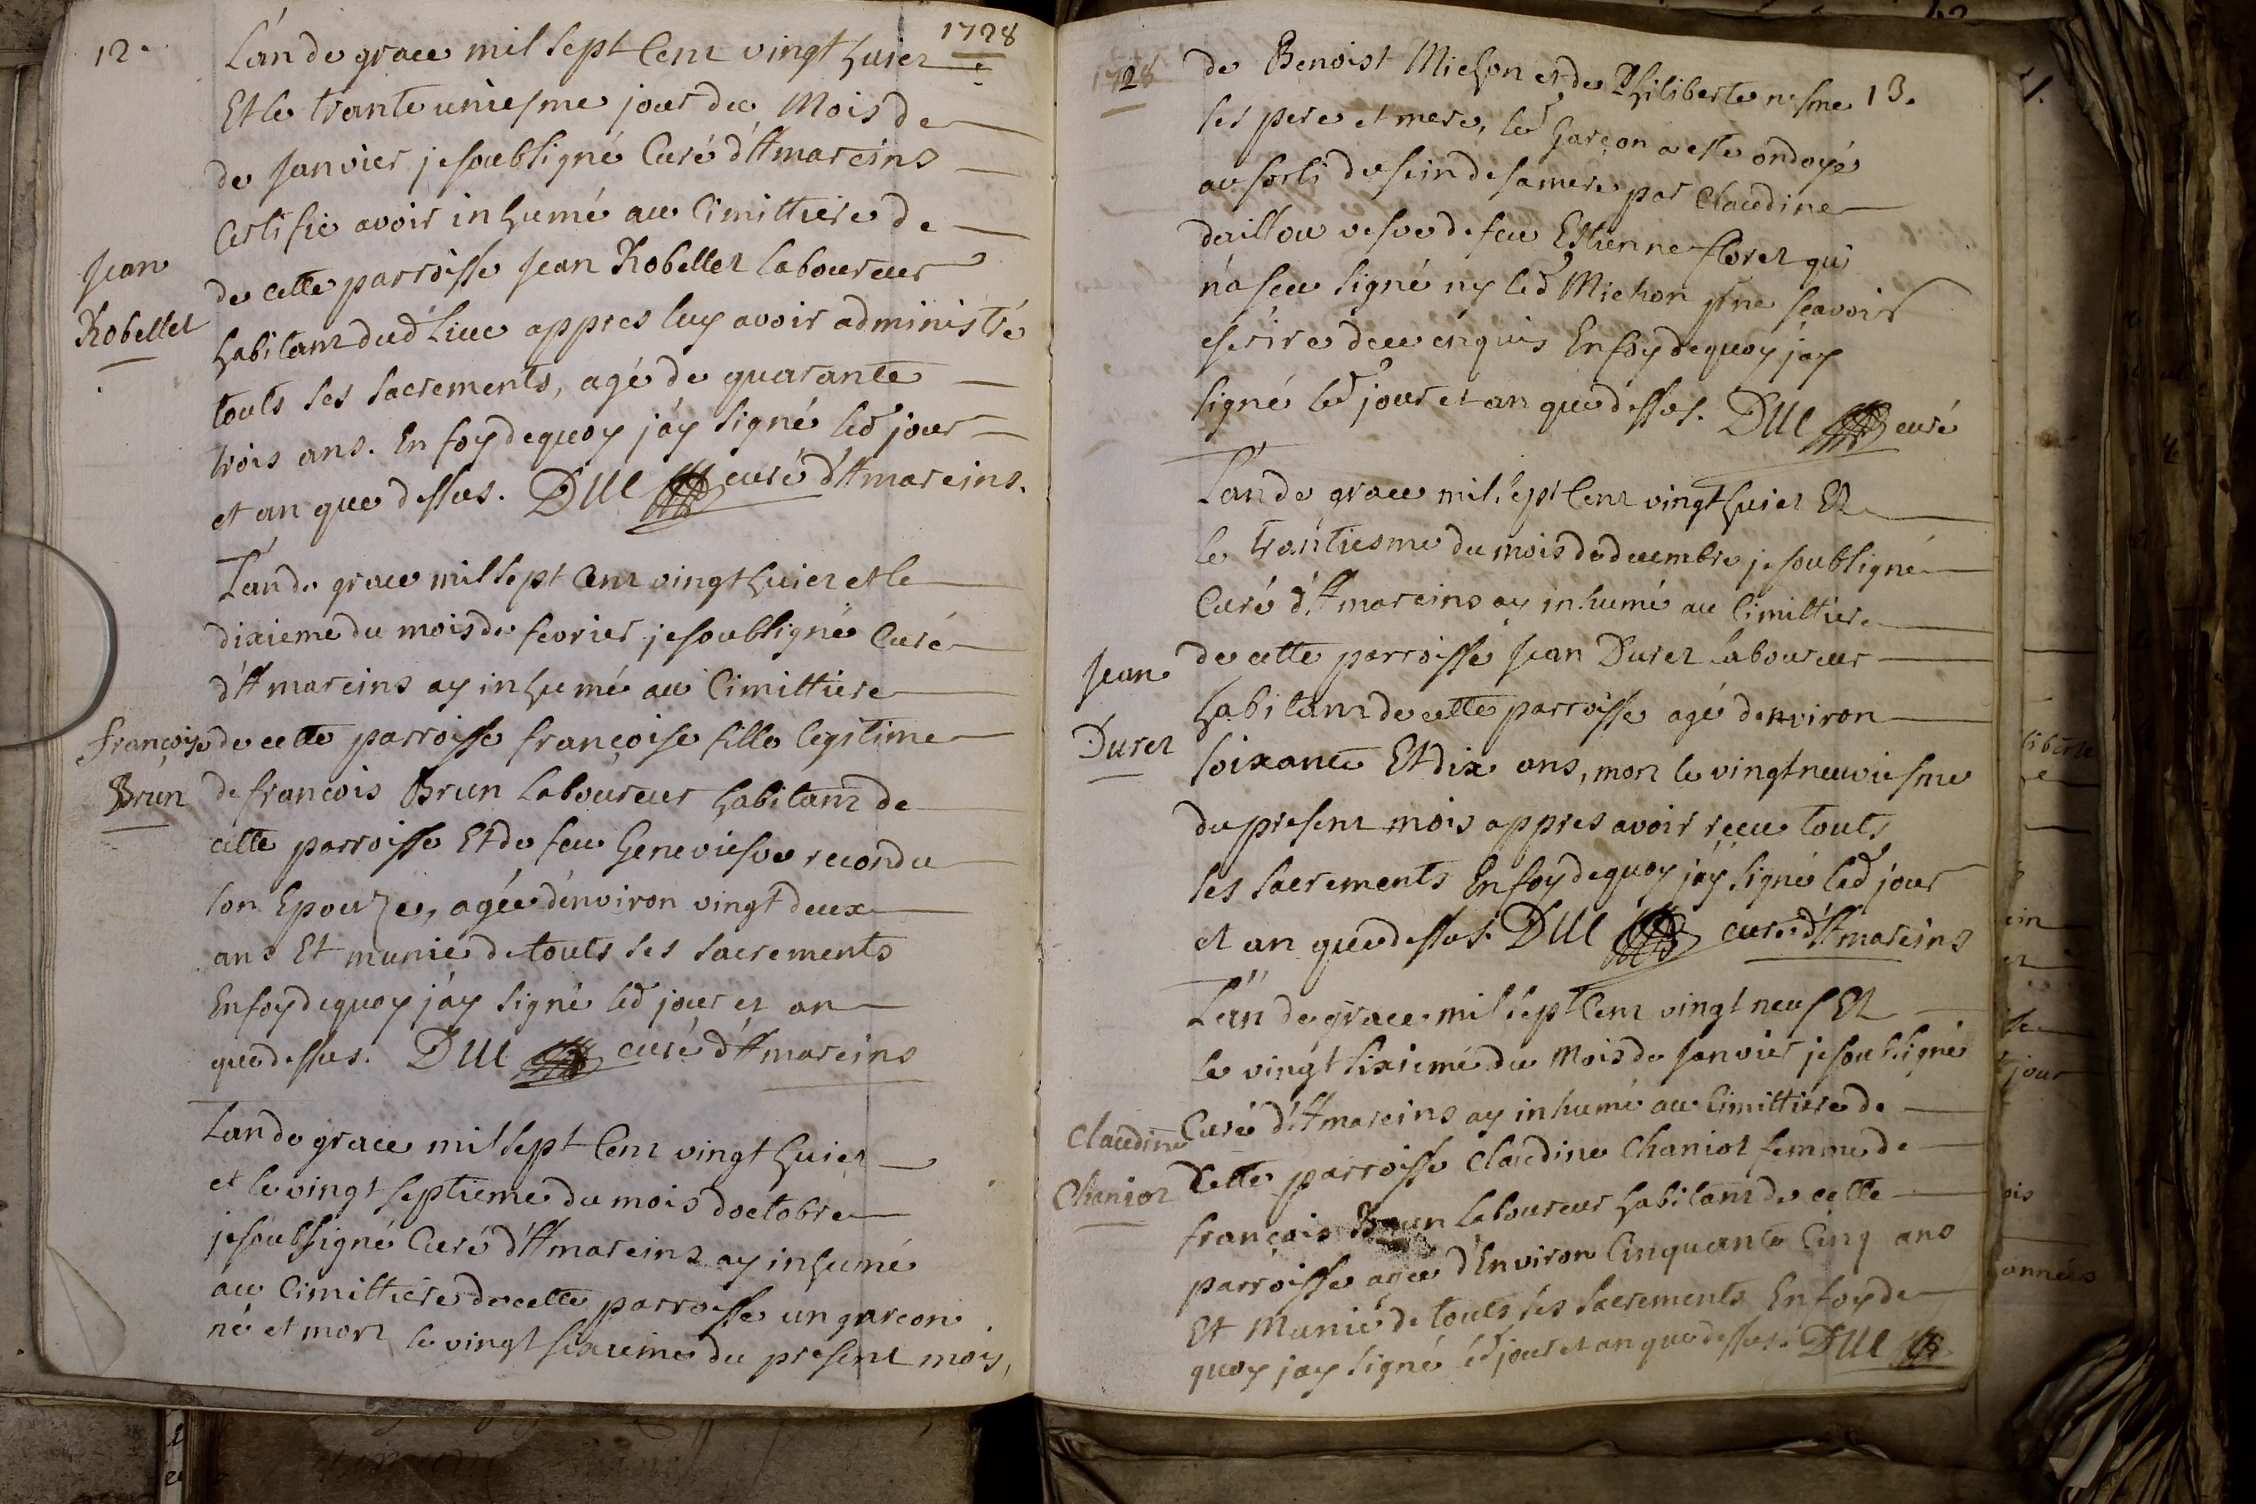 12.
1728
L'an de grace mil sept Cent vingt huiet
Et le trante uniesme jour du Mois de
de Janvier je soubsigné Curé d'Amareins
Certifie avoir inhumé au Cimittiere de
de cette parroisse Jean Robellet laboureur
Jean
Robellet
habitant dud lieu appres luy avoir administré
touts ses sacrements, agé de quarante
trois ans. En foy de quoy j'ay signé led jour
et an que dessus. DUC curé d'Amareins.
L'an de grace mil sept Cent vingt huiet et le
dixieme du mois de fevrier je soubsigné Curé
d'Amareins ay inhumé au Cimittiere
françoise
Brun
de cette parroisse françoise fille legitime
de françois Brun laboureur habitant de
cette parroisse Et de feu Geneviesve recordu
son Epouze, agée d'environ vingt deux
ans Et munie de touts ses sacrements
En foy de quoy j'ay signé led jour et an
que dessus. DUC curé d'Amareins
L'an de grace mil sept Cent vingt huiet
et le vingt septieme du mois d'octobre
je soubsigné Curé d'Amareins ay inhumé
au Cimittiere de cette parroisse un garcon
né et mort le vingt sixieme du present mois,
1728
13.
de Benoist Michon et de Philiberte
ses pere et mere, led Garçon a esté ondoyé
au sorti du sein de sa mere par Claudine
daillou vesve de feu Estienne floret qui
n'a sceu signé ny led Michon p ne scavoir
escrire de ce enquis En foy de quoy j'ay
signé led jour et an que dessus. DUC curé
L'an de grace mil sept Cent vingt huiet Et
le trantiesme du mois de decembre je soubsigné
Curé d'Amareins ay inhumé au Cimittiere
de cette parroisse Jean Duret laboureur
Jean
Duret
habitant de cette parroisse agé d'environ
soixante Et dix ans, mort le vingt neuviesme
du present mois appres avoir receu touts
ses sacrements En foy de quoy j'ay signé led jour
et an que dessus. DUC curé d'Amareins
L'an de grace mil sept Cent vingt neuf Et
le vingt sixiemé du Mois de Janvier je soubsigné
Curé d'Amareins ay inhumé au Cimittiere de
Claudine
Chaniot
Cette parroisse Claudine Chaniot femme de
françois Brun laboureur habitant de cette
parroisse agée d'Environ Cinquante Cinq ans
Et Munie de touts ses sacrements En foy de
quoy j'ay signé led jour et an que dessus. DUC